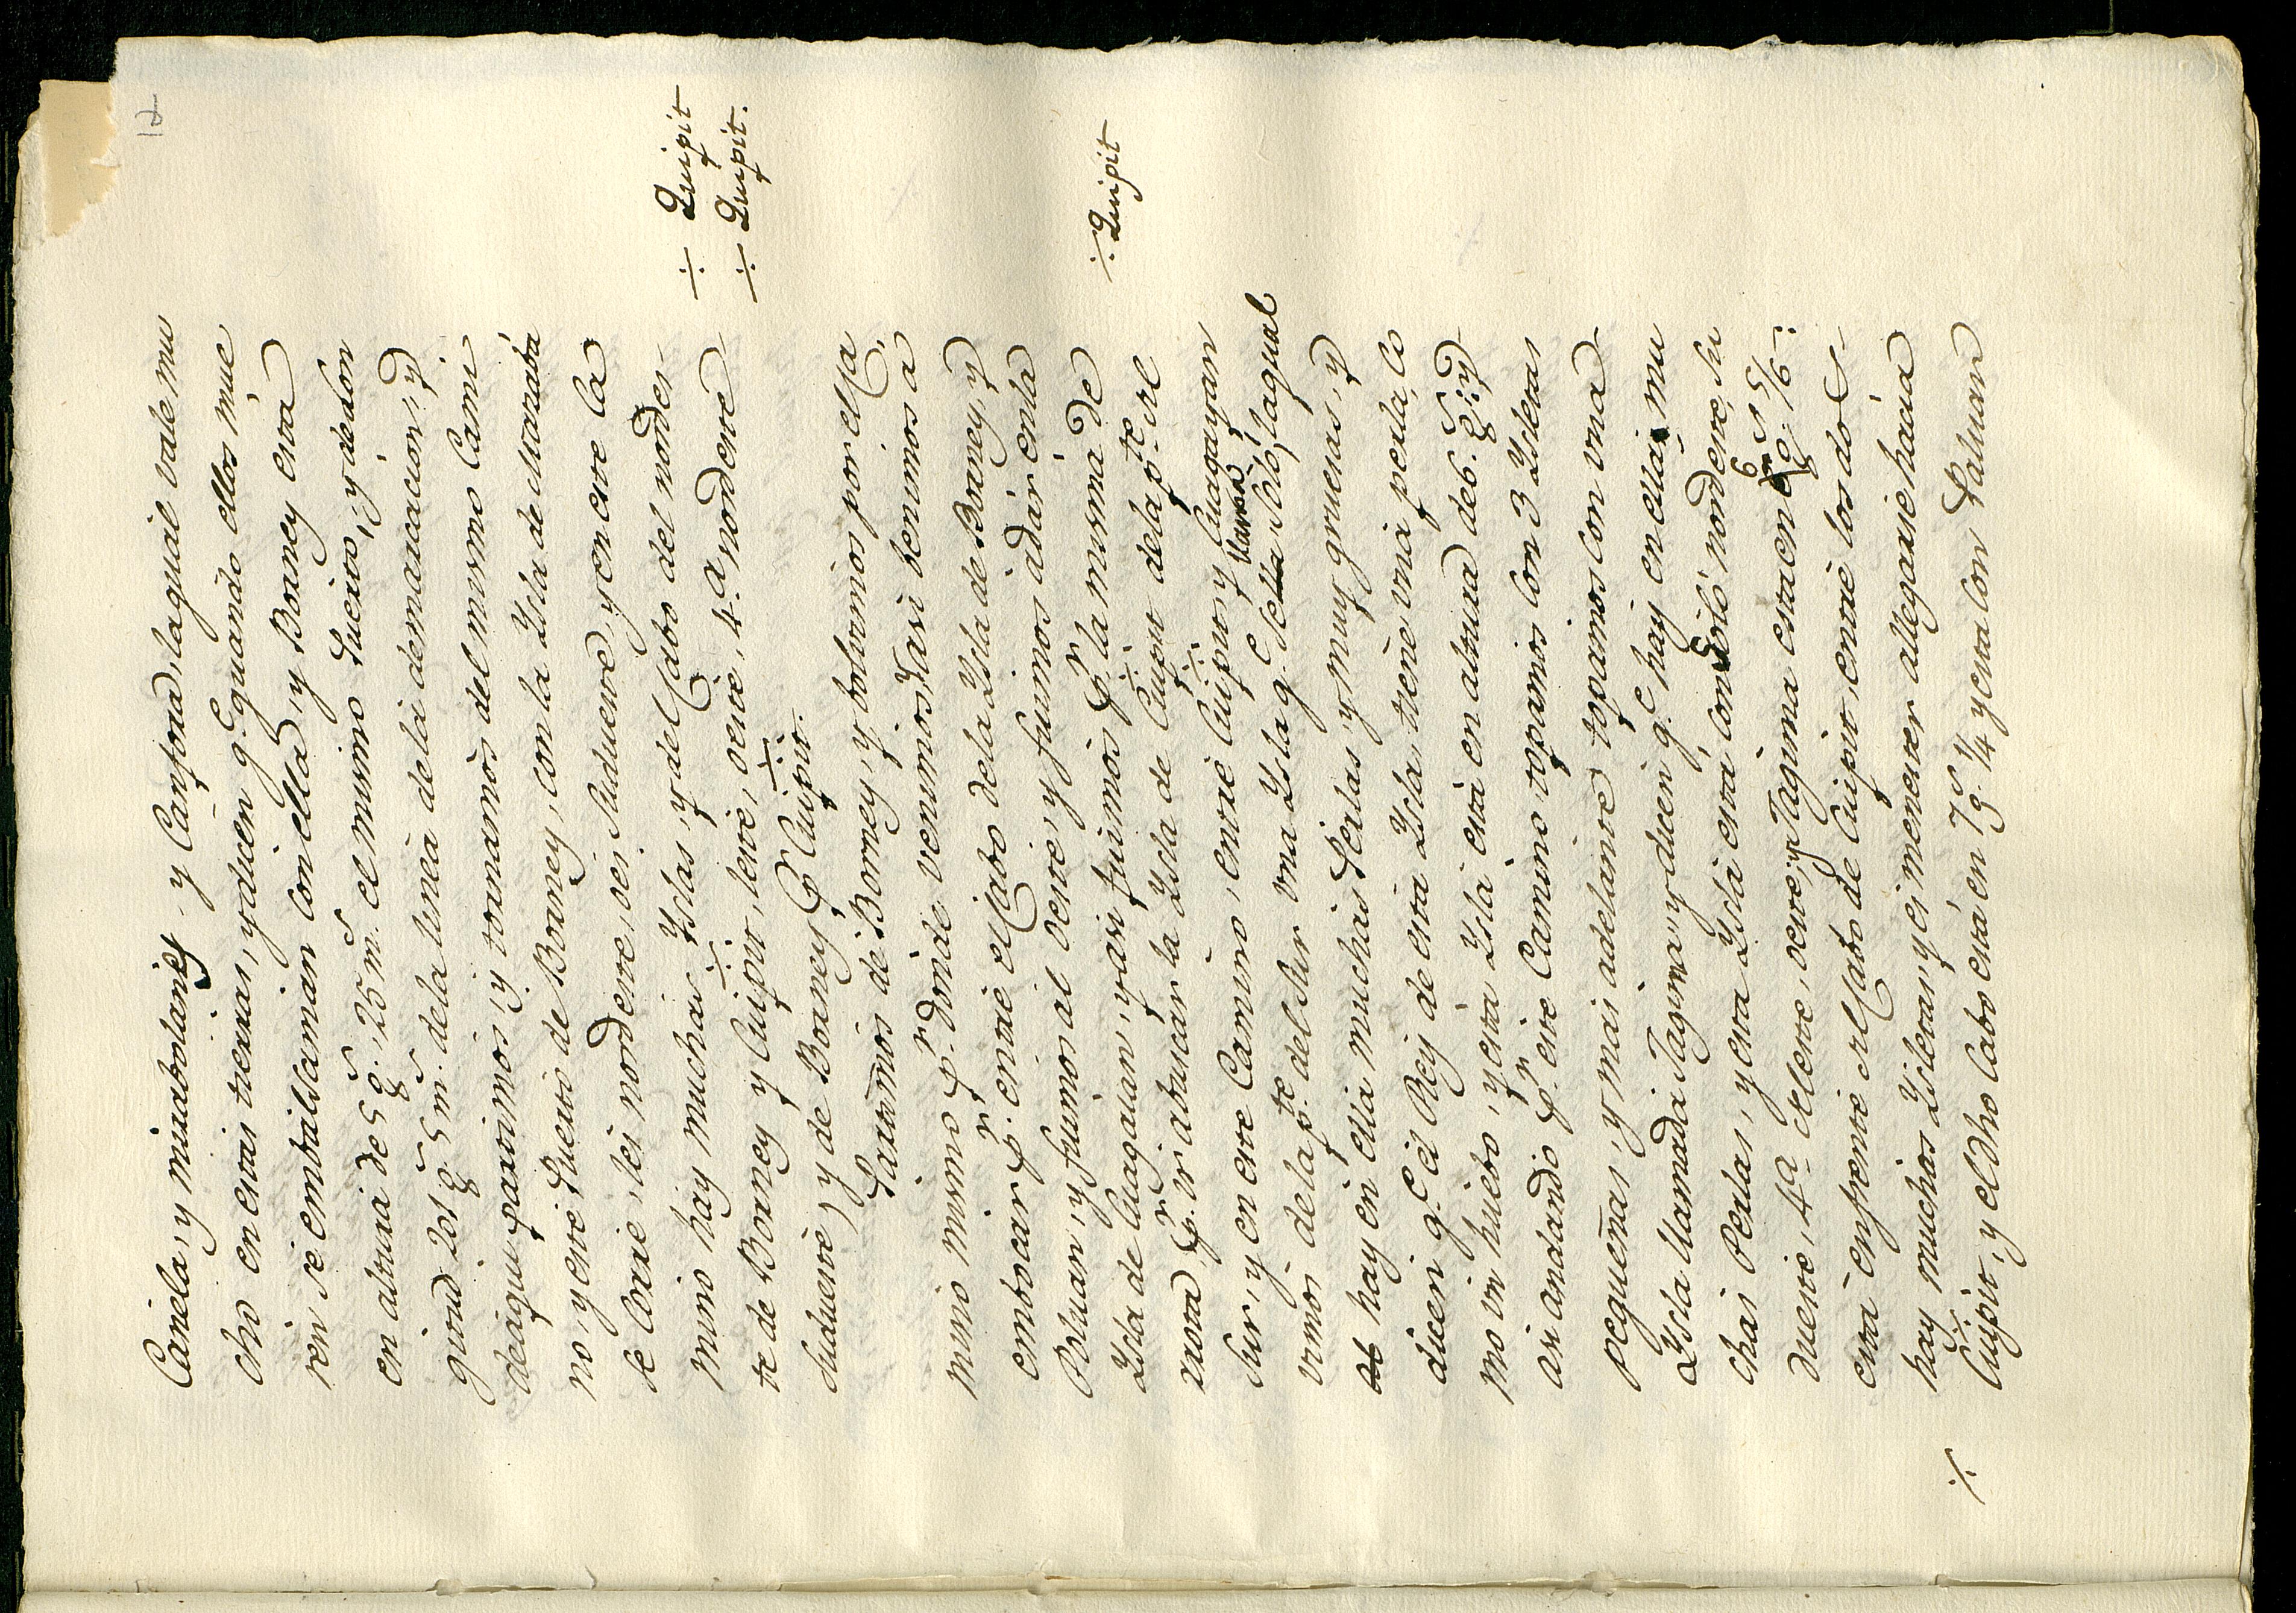 17
Canela, y mirabolanes y Canfora, la qual vale mu
cho en estas tierras, y dicen q.e quando ellos mue
ren se embalsaman con ella, y Borney está
en altura de 5 g.s, 25 m.s el mismo Puerto, y de lon
gitud 201 g.s 5 m.s de la linea de la demarcacion, y
de aqui partimos, y tornamos del mismo Cami
no, y este Puerto de Borney, con la Ysla de Maraba
se Corre, les nordeste, oes sudueste, y en este Ca
mino hay muchas Yslas, y del Cabo del nordes
te de Borney y Cuipit, leste, oeste, 4.a nordeste
÷ Quipit
÷ Quipit.
sudueste, y de Borney, p.r Cuipit.
Partimos de Borney, y bolvimos por ella
mismo mismo p.r donde venimos, y asi benimos a
embocar p.r entre el Cabo de la Ysla de Borney, y
Poluan, y fuimos al oeste, y fuimos a dar en la
Ysla de Cuagaian, y asi fuimos p.r la misma de
÷ Quipit
rrota, p.r ir a buscar la Ysla de Cuipit de la p.te del
Sur, y en este Camino, entre Cuipit, y Cuagayan
vimos de la p.te del Sur vna Ysla q.e se lla llaman Solo, la qual
ab hay en ella muchas Perlas, y muy gruesas, y
dicen q.e el Rey de esta Ysla, tiene vna perla, co
mo vn huebo, y esta Ysla está en altura de 6. g.s, y
asi andando p.r este Camino, topamos con 3 Ysletas
pequeñas, y mas adelante topamos con vna
Ysla llamada Tagima, y dicen q.e hay en ella mu
chas Perlas, y esta Ysla está con Soló nordeste, su
dueste, 4.a del leste, oeste, y Tagima esta en 6 g.s 5/6
está enfrente del Cabo de Cuipit, entre los dos
hay muchas Ysletas, y es menester allegarse hacia
÷ Cuipit, y el dho Cabo está en 7 g.s 1/4 y esta con Paluan